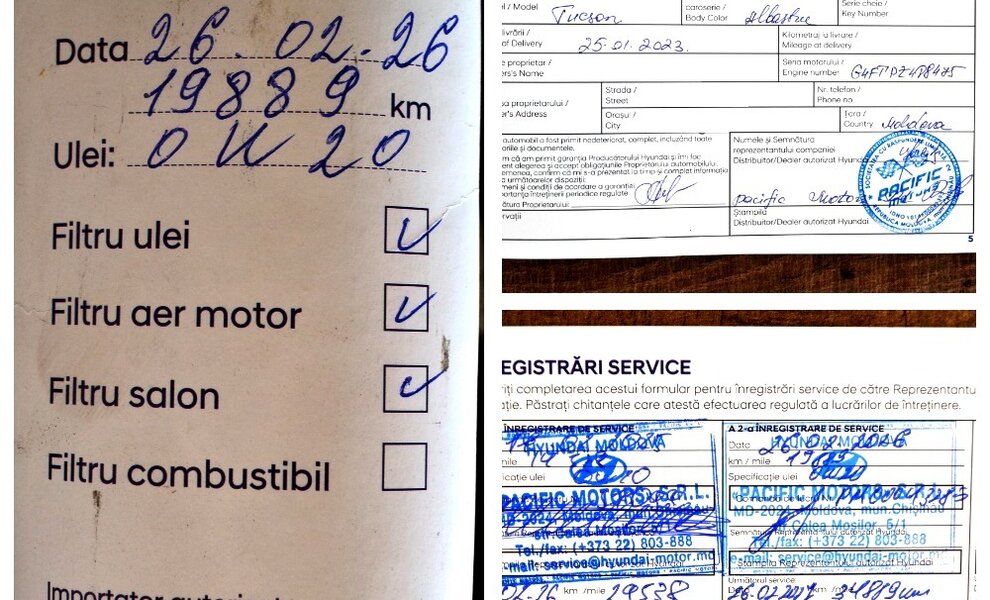 Data 26.02.26
19889 km
Ulei: 0W20
Filtru ulei
Filtru aer motor
Filtru salon
Filtru combustibil
/ Model Tucson
caroserie /
Body Color albastru
Serie cheie /
Key Number
livrării /
of Delivery 25.01.2023.
Kilometraj la livrare /
Mileage at delivery
e proprietar /
er's Name
Seria motorului /
Engine number
Strada /
Street
Nr. telefon /
Phone no
sa proprietarului /
er's Address
Orașul /
City
Țara /
Country Moldova
automobila a fost primit nedeteriorat, complet, incluzând toate
oriile și documentele.
m că am primit garanția Producătorului Hyundai și îmi fac
ent alegerea și accept obligațiunile Proprietarului automobilului.
emenea, confirm că mi s-a prezentat la timp și complet informația
a următoarelor dispoziții:
meni și condiții de acordare a garanției
portanța întreținerii periodice regulate
ătura Proprietarului:
rvații
Numele și Semnătura
reprezentantului companiei
Distribuitor/Dealer autorizat Hyundai
pacific Motors
Ștampila
Distribuitor/Dealer autorizat Hyundai
PACIFIC
5
EGISTRĂRI SERVICE
riți completarea acestui formular pentru înregistrări service de către Reprezentantu
ație. Păstrați chitanțele care atestă efectuarea regulată a lucrărilor de întreținere.
ÎNREGISTRARE DE SERVICE
HYUNDAI MOLDOVA
PACIFIC MOTORS S.R.L.
MD-2024 Moldova, mun.Chișinău
str. Calea Moșilor, 5/1
Tel./fax: (+373 22) 803-888
e-mail: service@hyundai-motor.md
02.26 km /mile 29538
A 2-a ÎNREGISTRARE DE SERVICE
Data 26.02.2026
HYUNDAI MOLDOVA
km / mile
Specificație ulei
PACIFIC MOTORS S.R.L.
MD-2024 Moldova, mun.Chișinău
Calea Moșilor, 5/1
Tel./fax: (+373 22) 803-888
e-mail: service@hyundai-motor.md
Ștampila Reprezentantului autorizat Hyundai
Următorul service
26.02.2027 km /mile 34889